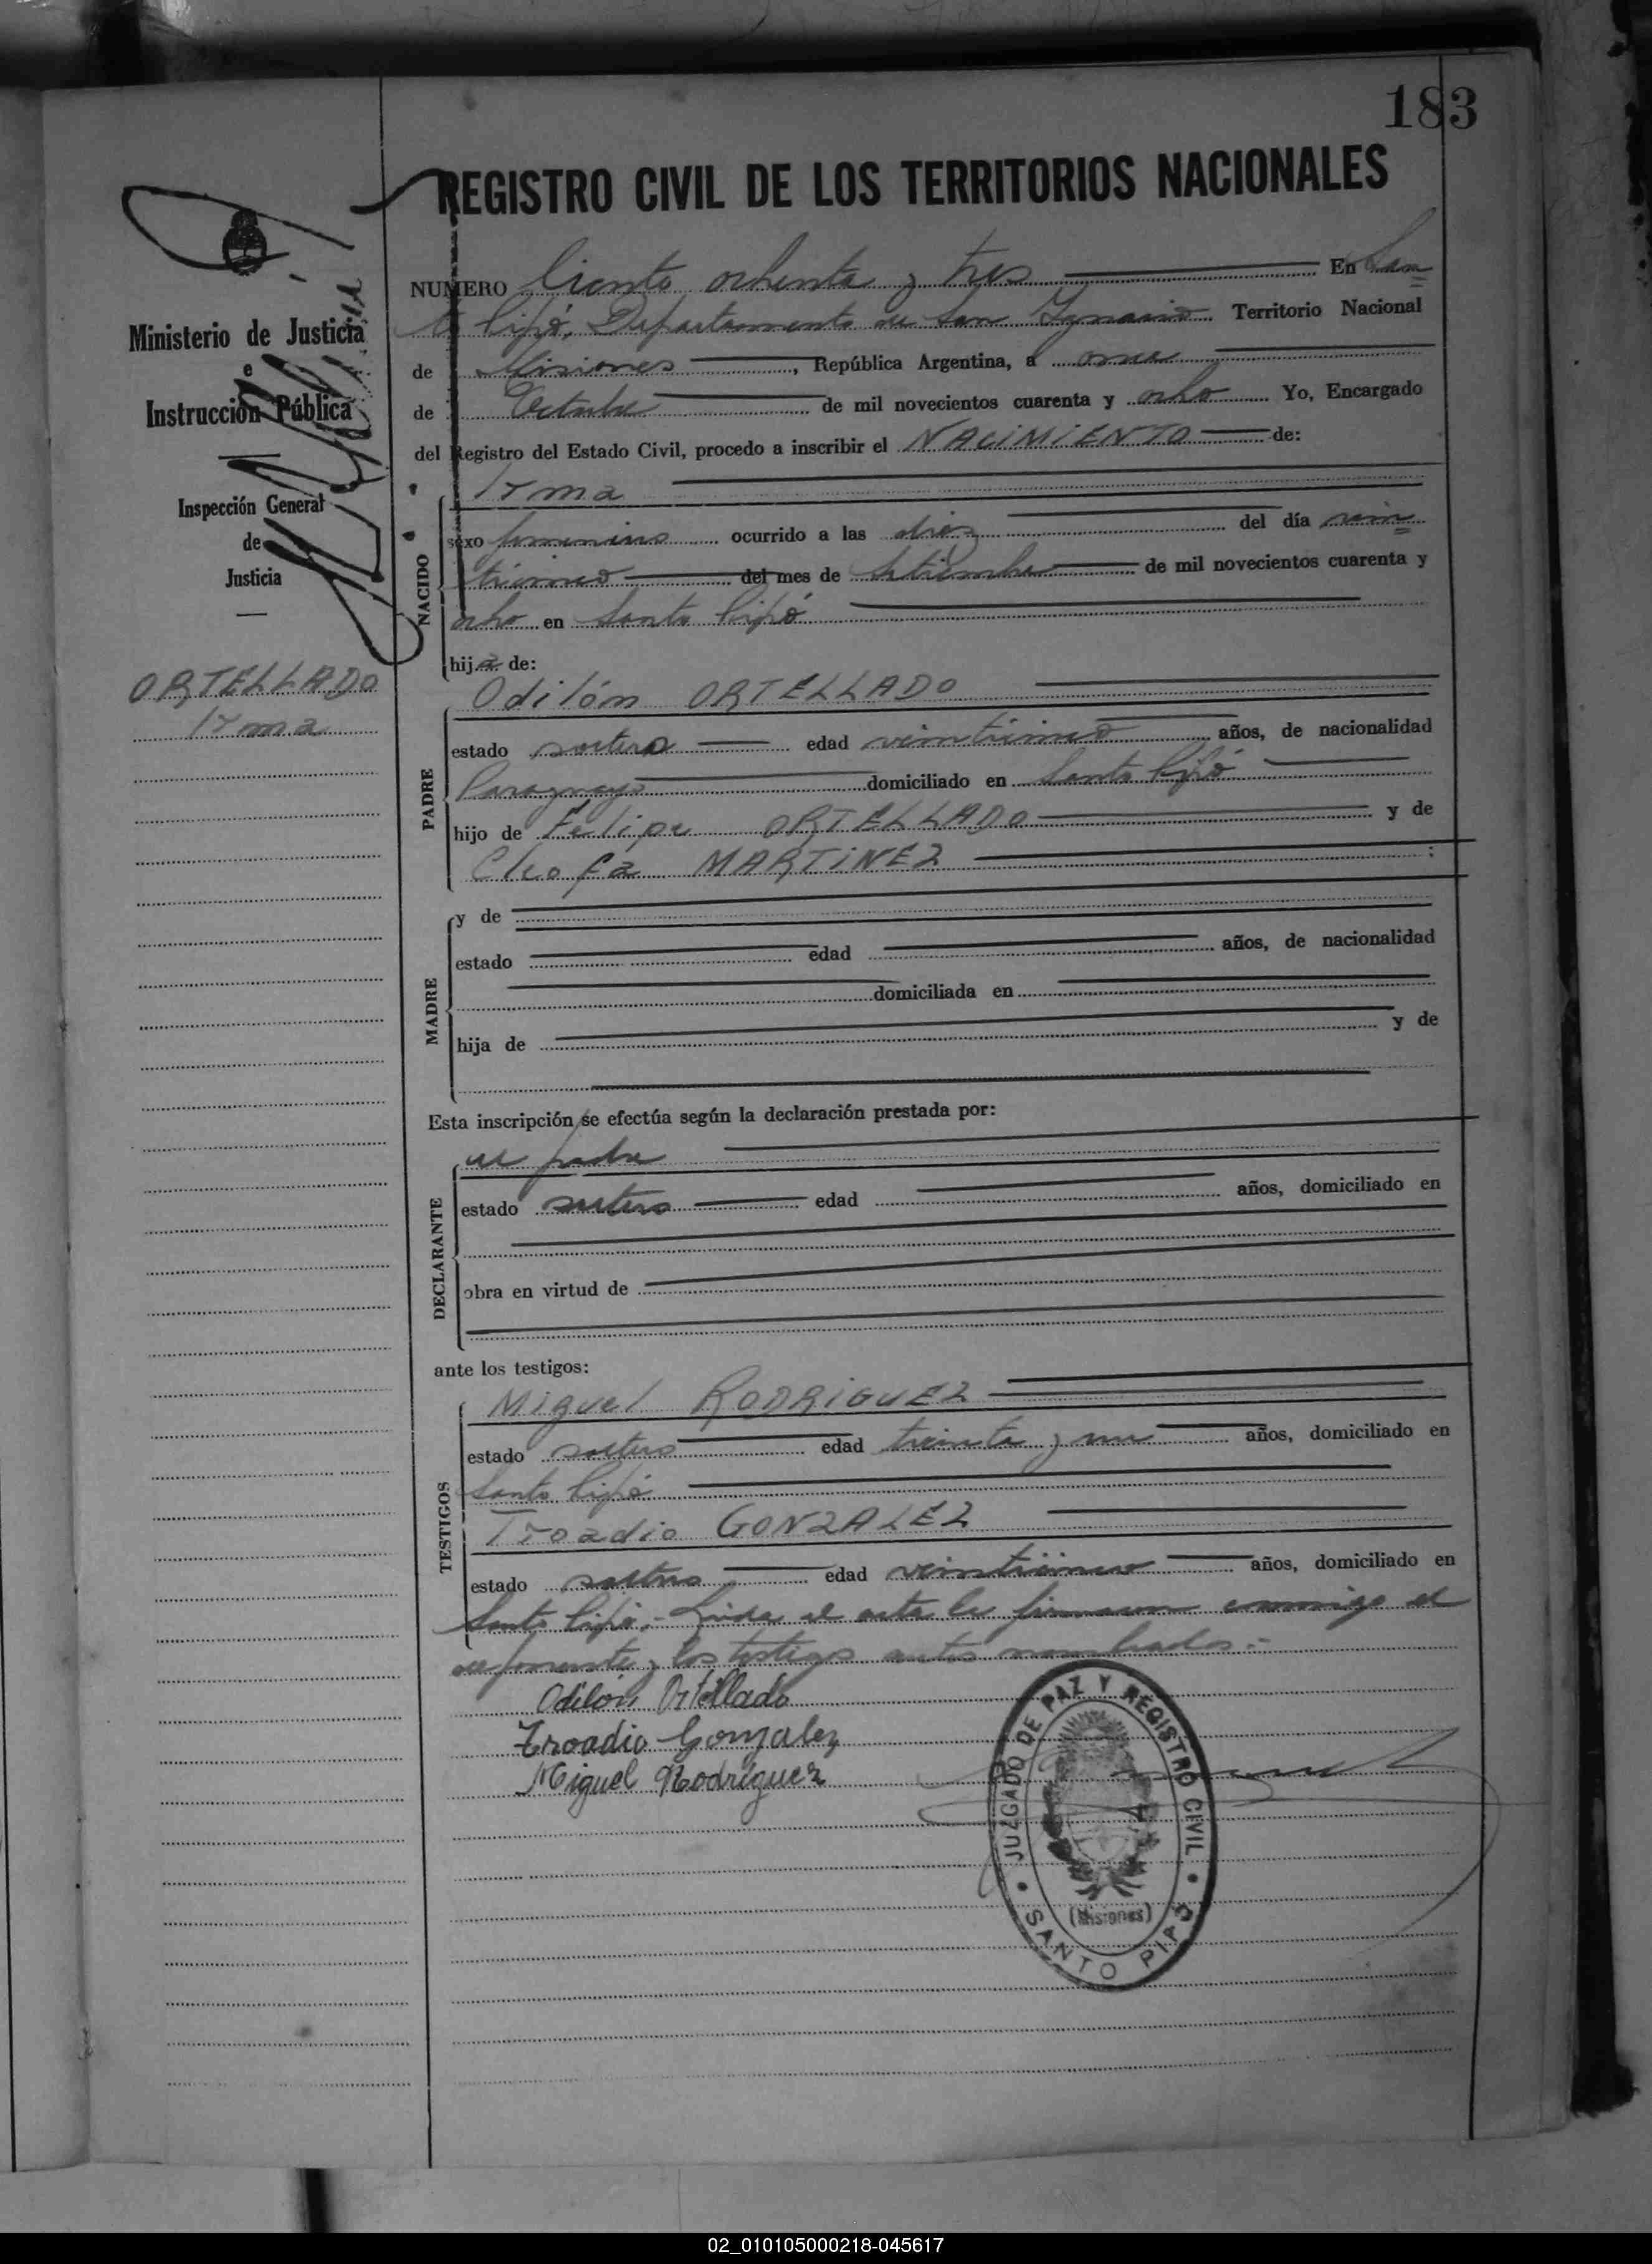 183
REGISTRO CIVIL DE LOS TERRITORIOS NACIONALES
NUMERO Ciento ochenta y tres En San
to Pipó, Departamento de San Ignacio Territorio Nacional
de Misiones, República Argentina, a once
de Octubre de mil novecientos cuarenta y ocho Yo, Encargado
del Registro del Estado Civil, procedo a inscribir el NACIMIENTO de:
Ministerio de Justicia
e
Instrucción Pública
Inspección General
de
Justicia
ORTELLADO
Irma
NACIDO
Irma
sexo femenino ocurrido a las diez del día vein
ticinco del mes de Setiembre de mil novecientos cuarenta y
ocho en Santo Pipó
hija de:
PADRE
Odilón ORTELLADO
estado soltero edad veinticinco años, de nacionalidad
Paraguayo domiciliado en Santo Pipó
hijo de Felipe ORTELLADO y de
Cleofa MARTINEZ :
MADRE
y de
estado edad años, de nacionalidad
domiciliada en
hija de y de
Esta inscripción se efectúa según la declaración prestada por:
DECLARANTE
el padre
estado soltero edad años, domiciliado en
obra en virtud de
ante los testigos:
TESTIGOS
Miguel RODRIGUEZ
estado soltero edad treinta y un años, domiciliado en
Santo Pipó
Troadio GONZALEZ
estado soltero edad veinticinco años, domiciliado en
Santo Pipó.- Leida el acta la firmaron conmigo el
exponente y los testigos antes nombrados.-
Odilon Ortellado
Troadio Gonzalez
Miguel Rodriguez
JUZGADO DE PAZ Y REGISTRO CIVIL
(Misiones)
SANTO PIPÓ
02_010105000218-045617